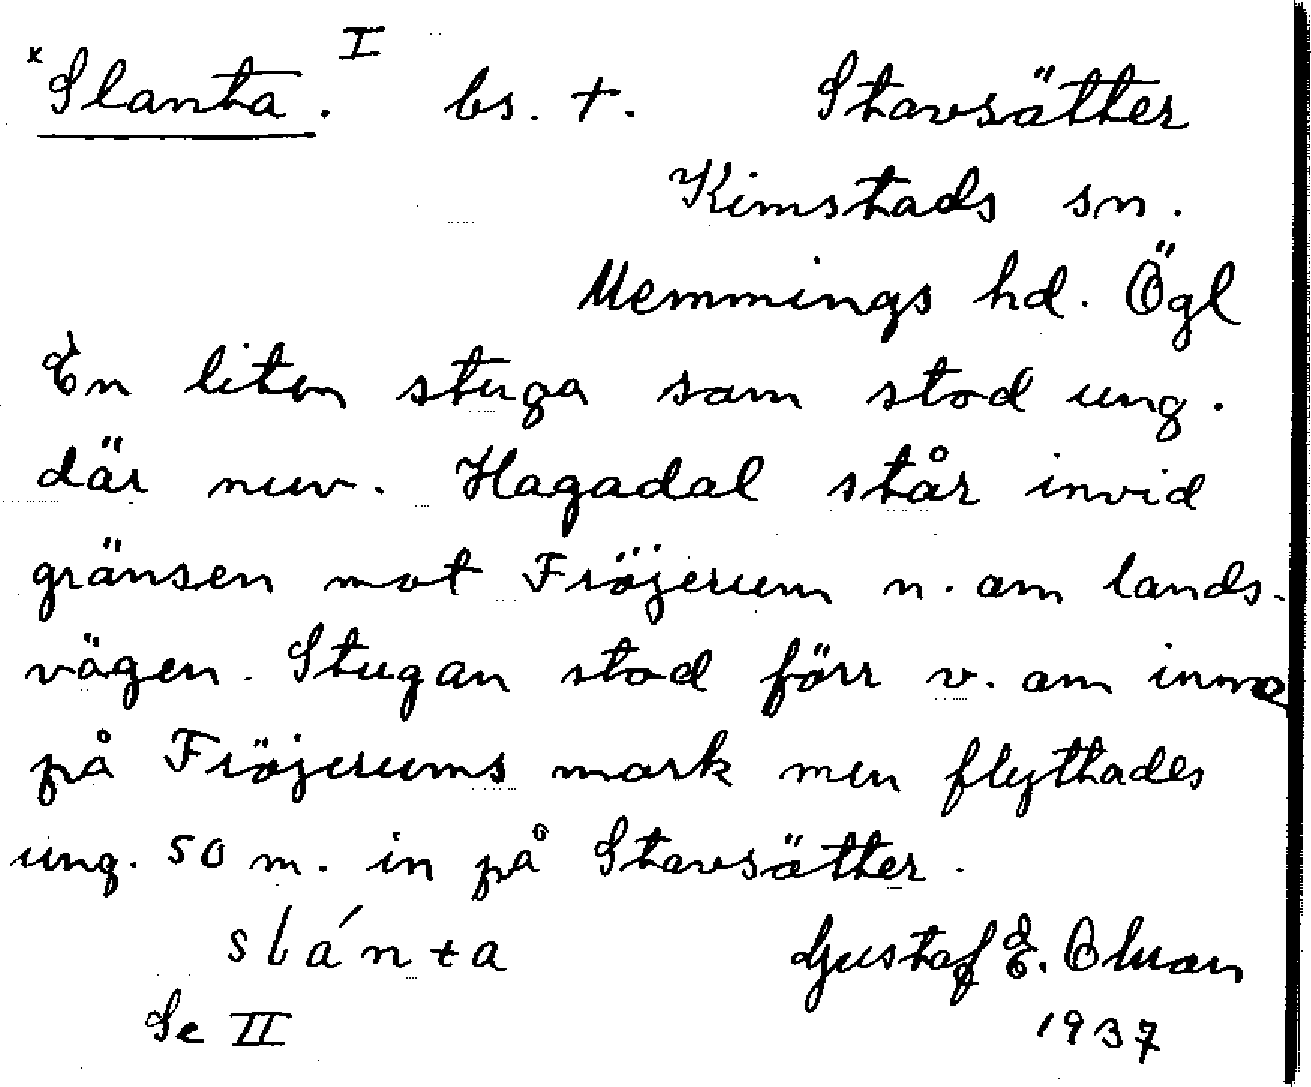 x Slanta. I bs. +. Stavsätter
Kimstads sn.
Memmings hd. Ögl
En liten stuga som stod ung.
där nuv. Hagadal står invid
gränsen mot Fröjerum n. om lands-
vägen. Stugan stod förr v. om inne
på Fröjerums mark men flyttades
ung. 50 m. in på Stavsätter.
slánta Gustaf E.
Se II 1937